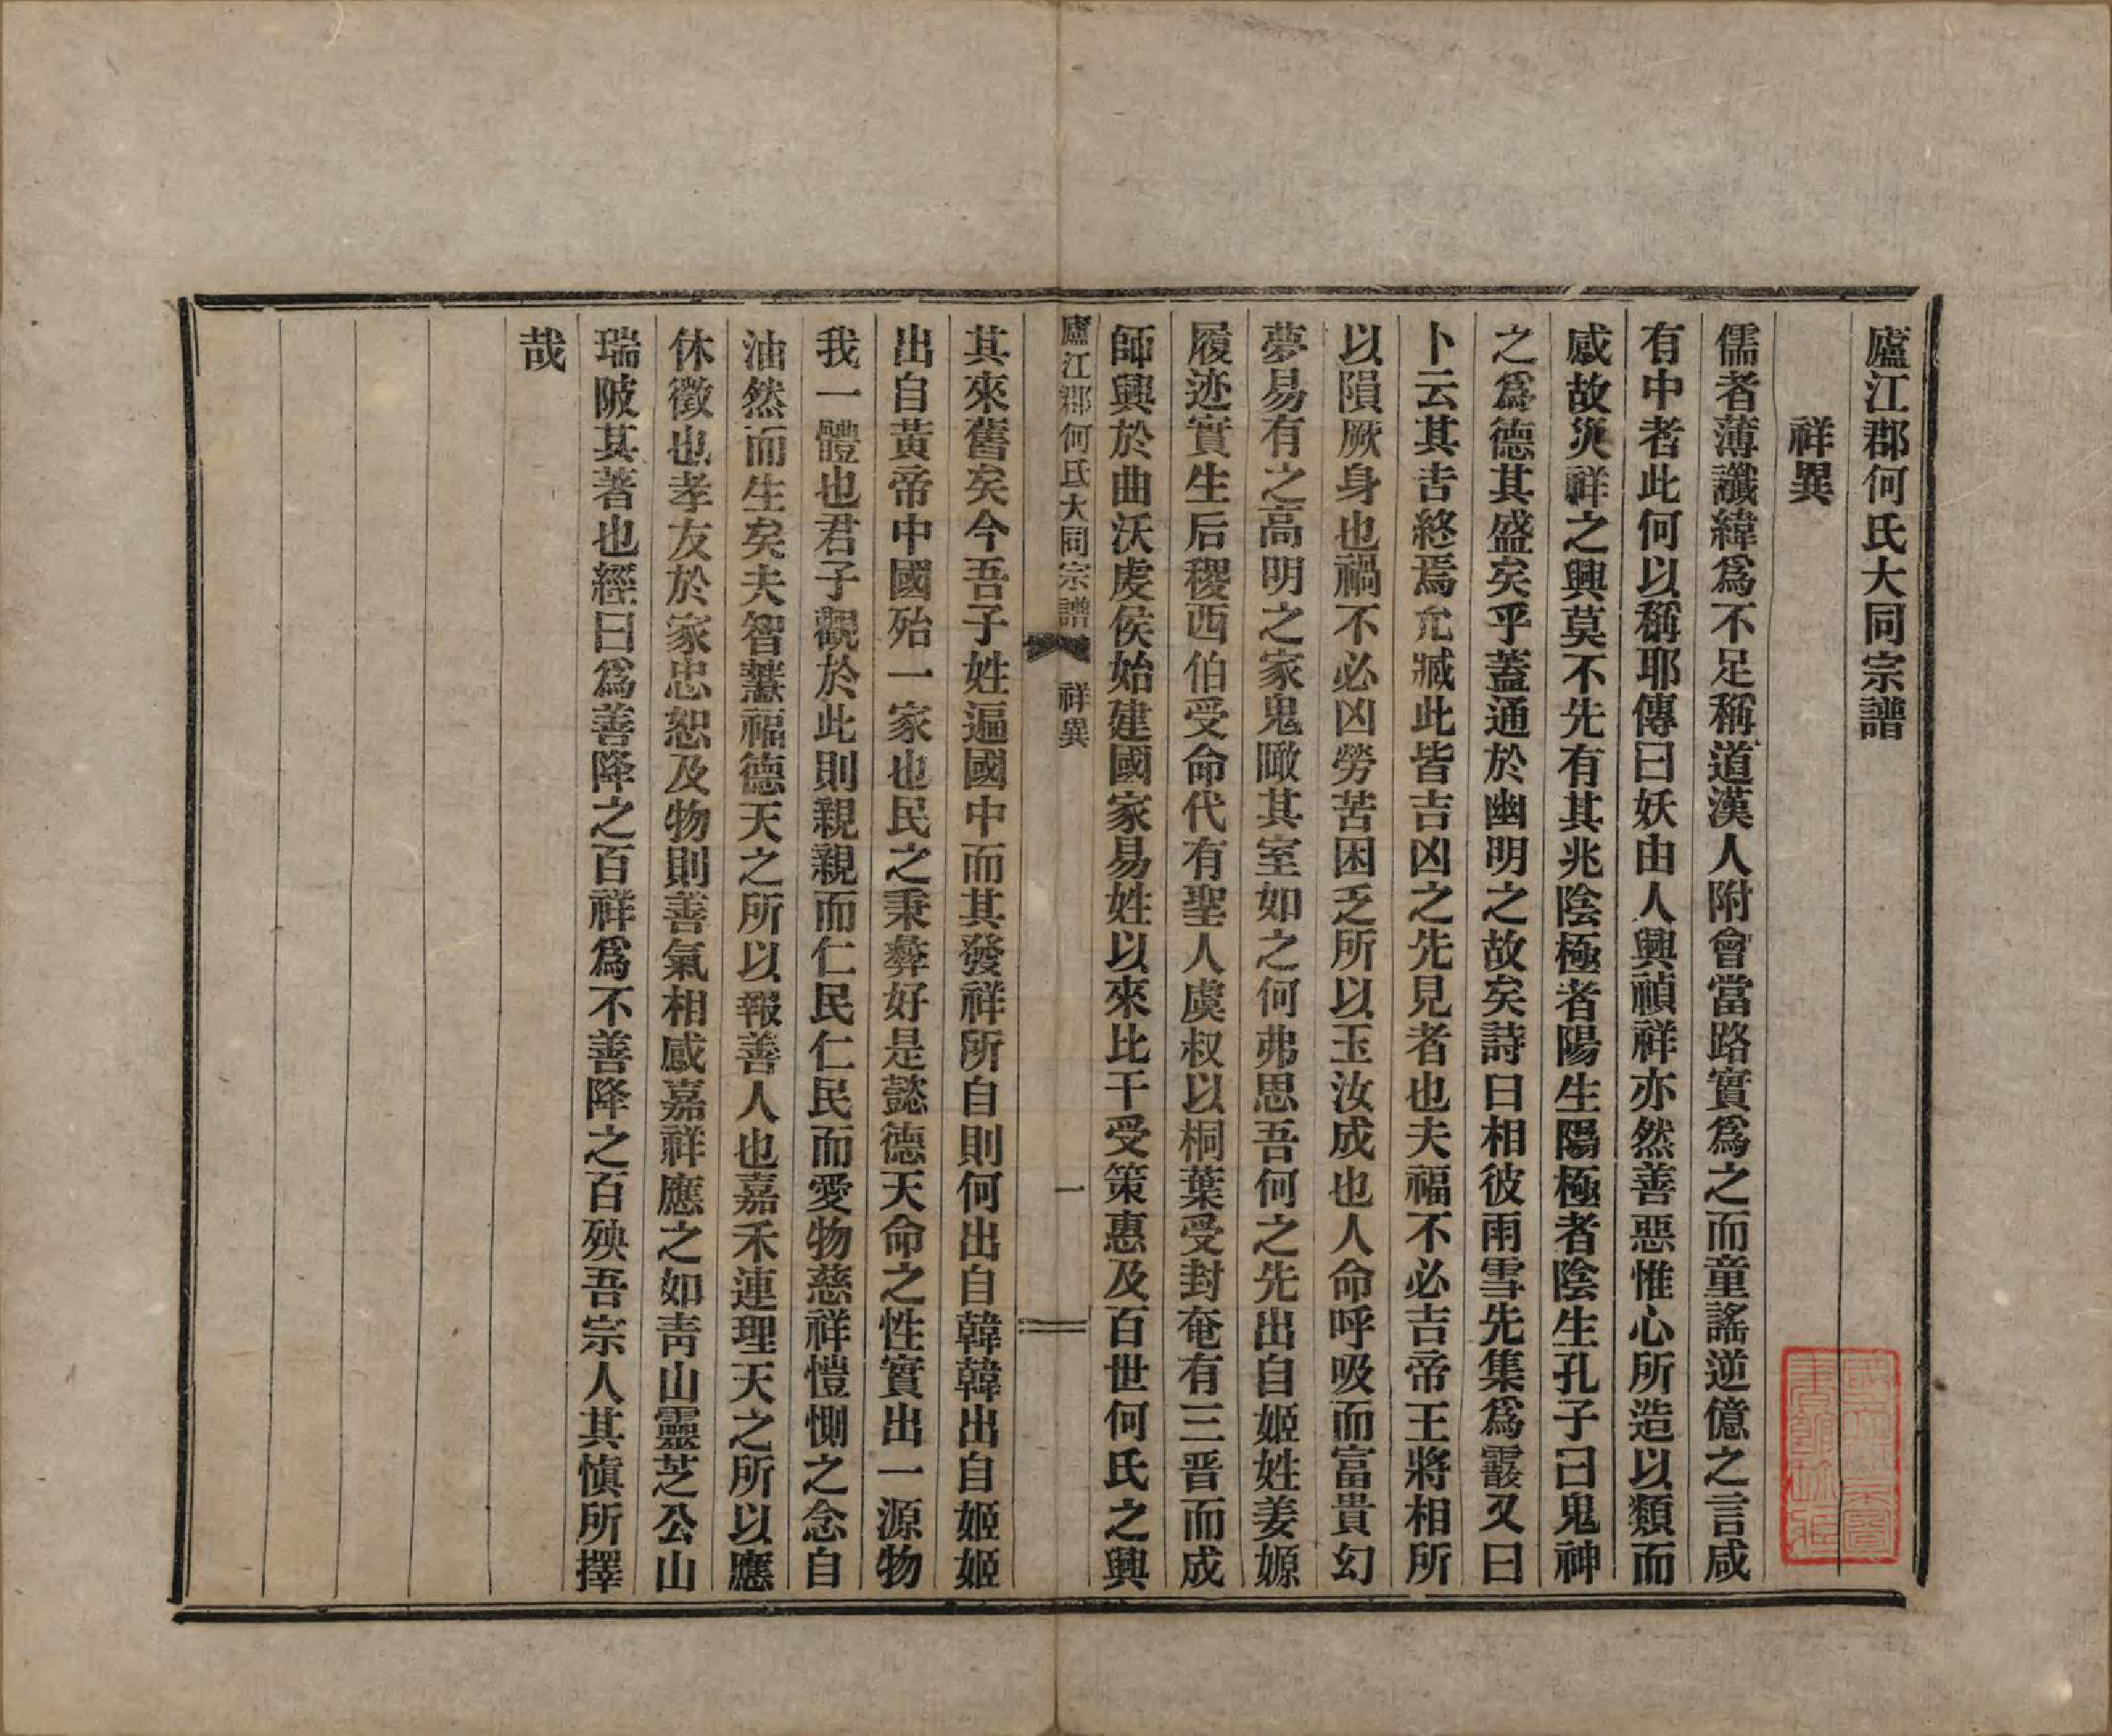 廬江郡何氏大同宗譜
祥異
儒者薄讖緯爲不足稱道漢人附會當路實爲之而童謠逆億之言咸
有中者此何以稱耶傳曰妖由人興禎祥亦然善惡惟心所造以類而
感故災祥之興莫不先有其兆陰極者陽生陽極者陰生孔子曰鬼神
之爲德其盛矣乎蓋通於幽明之故矣詩曰相彼雨雪先集爲霰又曰
卜云其吉終焉允臧此皆吉凶之先見者也夫福不必吉帝王將相所
以隕厥身也禍不必凶勞苦困乏所以玉汝成也人命呼吸而富貴幻
夢易有之高明之家鬼瞰其室如之何弗思吾何之先出自姬姓姜嫄
履迹實生后稷西伯受命代有聖人虞叔以桐葉受封奄有三晋而成
師興於曲沃虔侯始建國家易姓以來比干受策惠及百世何氏之興
廬江郡何氏大同宗譜 祥異 一
其來舊矣今吾子姓遍國中而其發祥所自則何出自韓韓出自姬姬
出自黃帝中國殆一家也民之秉彝好是懿德天命之性實出一源物
我一體也君子觀於此則親親而仁民仁民而愛物慈祥愷惻之念自
油然而生矣夫智慧福德天之所以報善人也嘉禾連理天之所以應
休徵也孝友於家忠恕及物則善氣相感嘉祥應之如靑山靈芝公山
瑞陂其著也經曰爲善降之百祥爲不善降之百殃吾宗人其愼所擇
哉